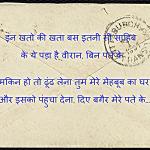 इन खतो की खता बस इतनी सी साहिब
के ये पड़ा है वीरान, बिन पते के
मकिन हो तो ढूंढ लेना तुम मेरे मेहबूब का घर
और इसको पहुंचा देना. दिए बगैर मेरे पते के...